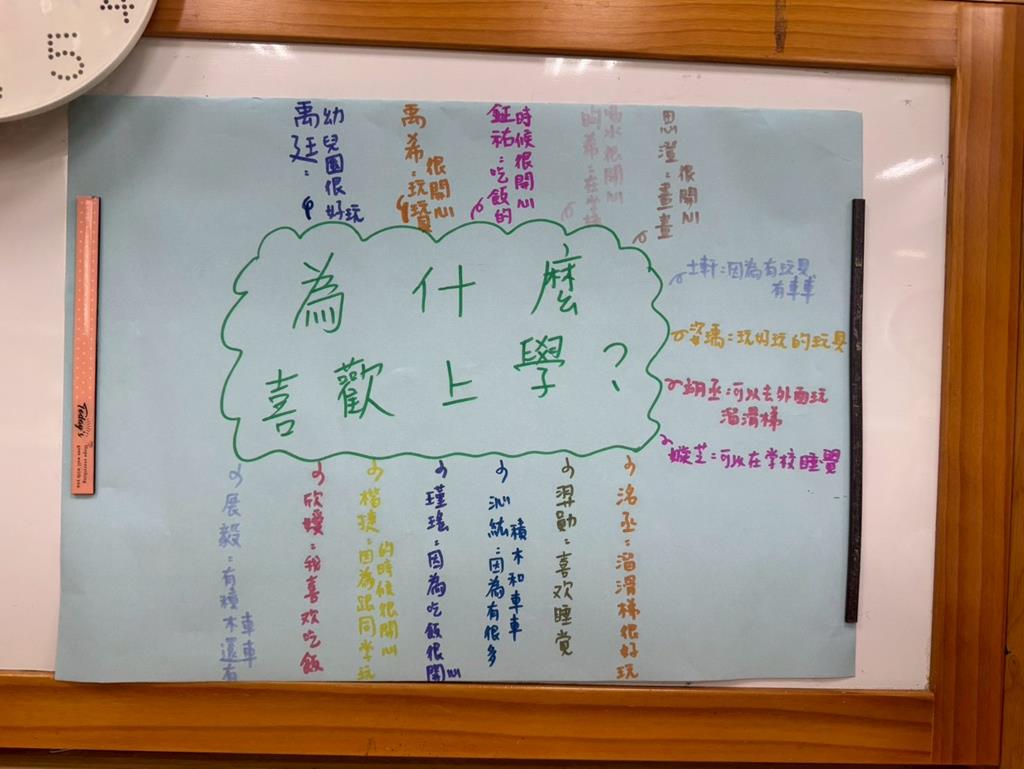 為什麼
喜歡上學?
禹廷:幼兒園很好玩
禹希:玩玩具很開心
鉦祐:吃飯的時候很開心
昀希:在學校喝水很開心
思澄:畫畫很開心
士軒:因為有玩具
有車車
姿瑀:玩好玩的玩具
玥丞:可以去外面玩
溜滑梯
嫙芝:可以在学校睡覺
洺丞:溜滑梯很好玩
羿勛:喜欢睡觉
沁紘:因為有很多積木和車車
瑾瑤:因為吃飯很開心
楷捷:因為跟同学玩的時候很開心
欣嬡:我喜欢吃飯
展毅:有積木還有車車
Today's
5
4